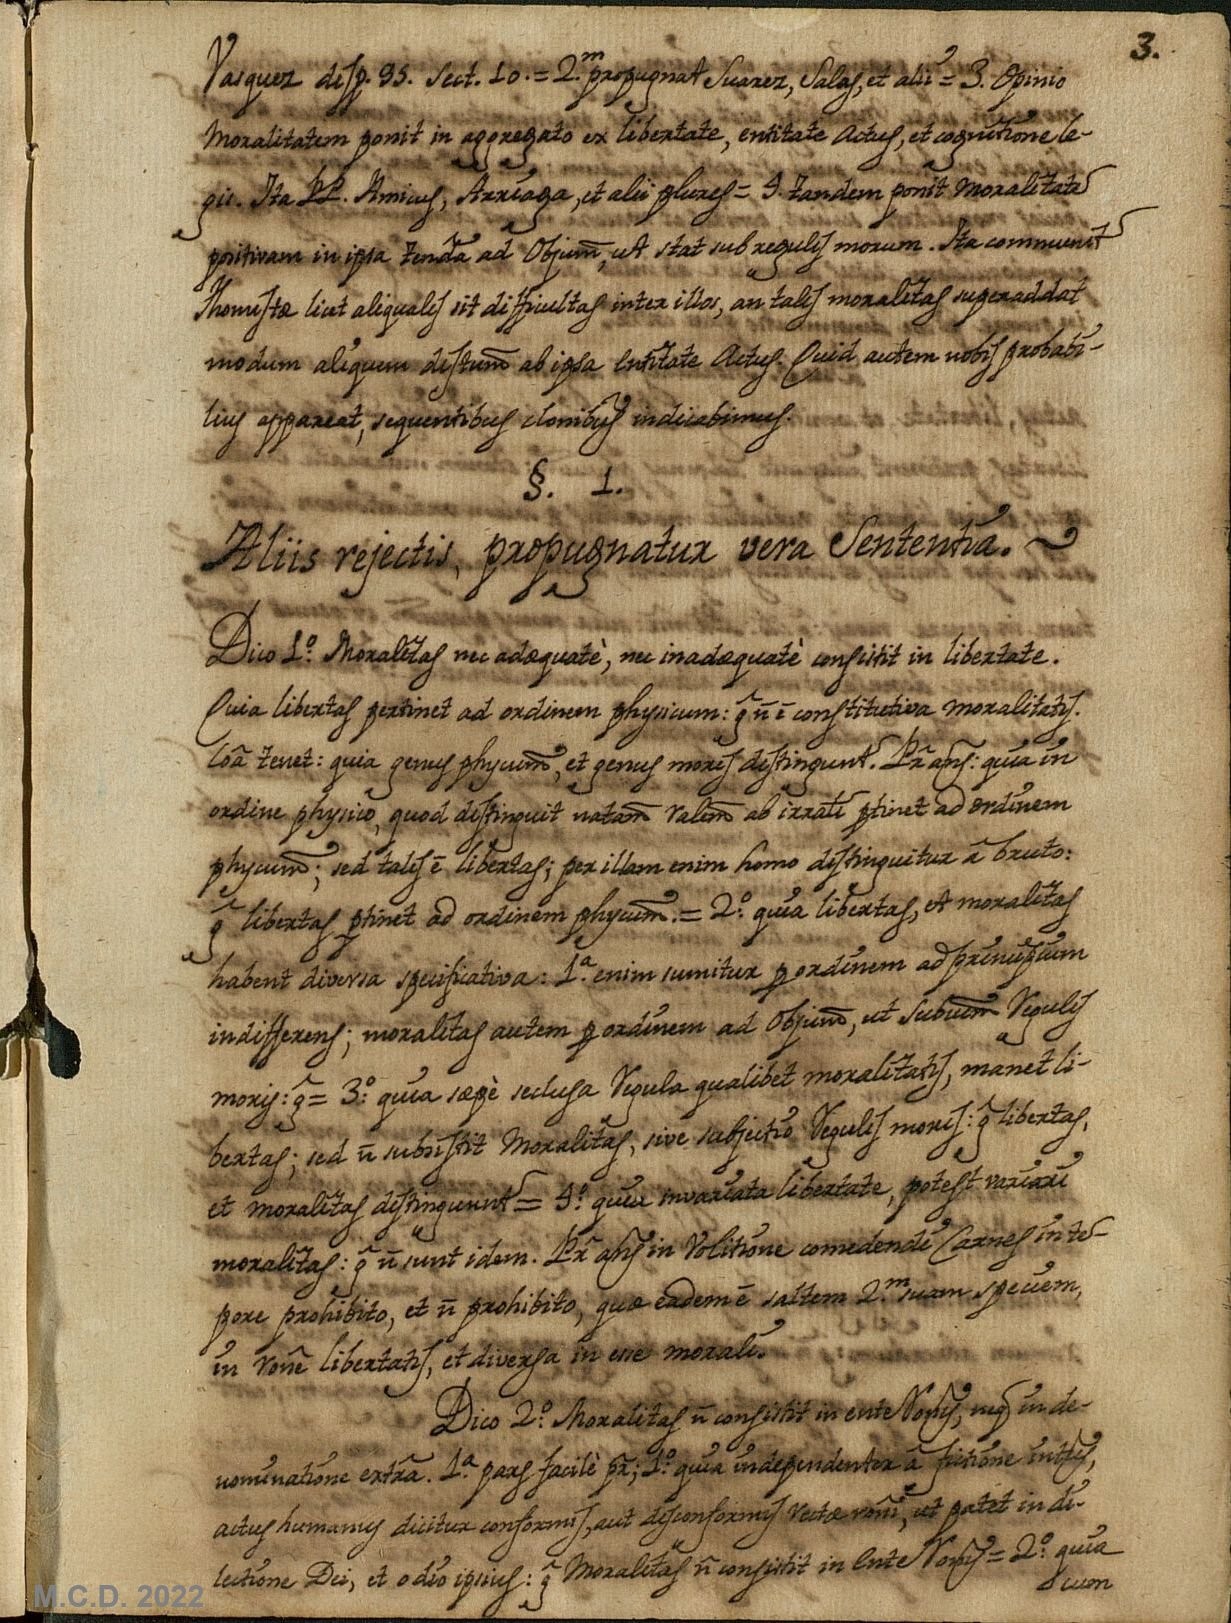 3.
Vasquez disp. 95. sect. 10. = 2.m propugnat Suarez, Salas, et alii = 3. Opinio
Moralitatem ponit in aggregato ex libertate, entitate Actus, et cognitione le-
gis. Ita PP. Amicus, Arriaga, et alii plures = 4. tandem ponit Moralitatē
positivam in ipsa tendā ad Objum̄, ut stat sub regulis morum. Ita communit̃
Thomistæ licet aliqualis sit difficultas inter illos, an talis moralitas superaddat
modum aliquem distum̄ ab ipsa entitate Actus. Quid autem nobis probabi-
lius appareat, sequentibus clonibus indicabimus.
§. 1.
Aliis rejectis, propugnatur vera Sententia.
Dico 1.º Moralitas nec adæquatè, nec inadæquatè consistit in libertate.
Quia libertas pertinet ad ordinem physicum: g̃ n̄ ē constitutiva moralitatis.
Coã tenet: quia genus phycum̄, et genus moris distingunt̃. Pr̃ añs: quia in
ordine physico, quod distinguit natam̄ ralem̄ ab irrali ptinet ad ordinem
phycum̄; sed talis ē libertas; per illam enim homo distinguitur ā bruto:
g̃ libertas ptinet ad ordinem phycum̄. = 2.º quia libertas, et moralitas
habent diversa specificativa: 1.ª enim sumitur p ordinem ad principium
indifferens; moralitas autem p ordinem ad Objum̄, ut subum̄ Regulis
moris: g̃ = 3.º quia sæpè seclusa Regula qualibet moralitatis, manet li-
bertas; sed n̄ subsistit Moralitas, sive subjectio Regulis moris: g̃ libertas,
et moralitas distingunt̃ = 4.º quia invariata libertate, potest variari
moralitas: g̃ n̄ sunt idem. Pr̃ añs in Volitione comedendi Carnes in te-
pore prohibito, et n̄ prohibito, quæ eadem ē saltem 2.m suam speciem,
in rone libertatis, et diversa in esse morali.
Dico 2.º Moralitas n̄ consistit in ente Ronis, neq in de-
nominatione extra. 1.ª pars facilè pr̃; 1.º quia independenter ā fictione inttus,
actus humanus dicitur conformis, aut disconformis rectæ roni, ut patet in di-
lectione Dei, et odio ipsius: g̃ Moralitas n̄ consistit in Ente Ronis = 2.º quia
cum
M.C.D. 2022